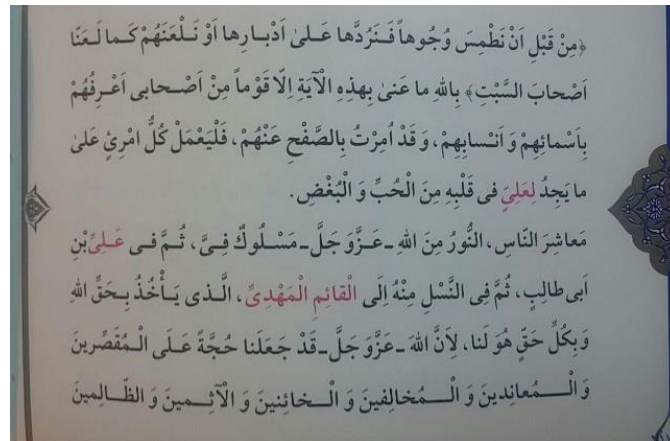 ﴿مِنْ قَبْلِ اَنْ نَطْمِسَ وُجُوهاً فَنَرُدَّها عَلىٰ اَدْبارِها اَوْ نَلْعَنَهُمْ كَما لَعَنّا
اَصْحابَ السَّبْتِ﴾ بِاللهِ ما عَنىٰ بِهٰذِهِ الْآيَةِ اِلّا قَوْماً مِنْ اَصْحابى اَعْرِفُهُمْ
بِاَسْمائِهِمْ وَ اَنْسابِهِمْ، وَ قَدْ اُمِرْتُ بِالصَّفْحِ عَنْهُمْ، فَلْيَعْمَلْ كُلُّ امْرِئٍ عَلىٰ
ما يَجِدُ لِعَلِيٍّ فى قَلْبِهِ مِنَ الْحُبِّ وَ الْبُغْضِ.
مَعاشِرَ النّاسِ، النُّورُ مِنَ اللهِ ـ عَزَّوَجَلَّ ـ مَسْلُوكٌ فِىَّ، ثُمَّ فى عَلىِّ بْنِ
اَبى طالِبٍ، ثُمَّ فِى النَّسْلِ مِنْهُ اِلَى الْقائِمِ الْمَهْدِىِّ، الَّذى يَأْخُذُ بِحَقِّ اللهِ
وَ بِكُلِّ حَقٍّ هُوَ لَنا، لِاَنَّ اللهَ ـ عَزَّوَجَلَّ ـ قَدْ جَعَلَنا حُجَّةً عَلَى الْمُقَصِّرينَ
وَ الْمُعانِدينَ وَ الْمُخالِفينَ وَ الْخائِنينَ وَ الْآثِمينَ وَ الظّالِمينَ